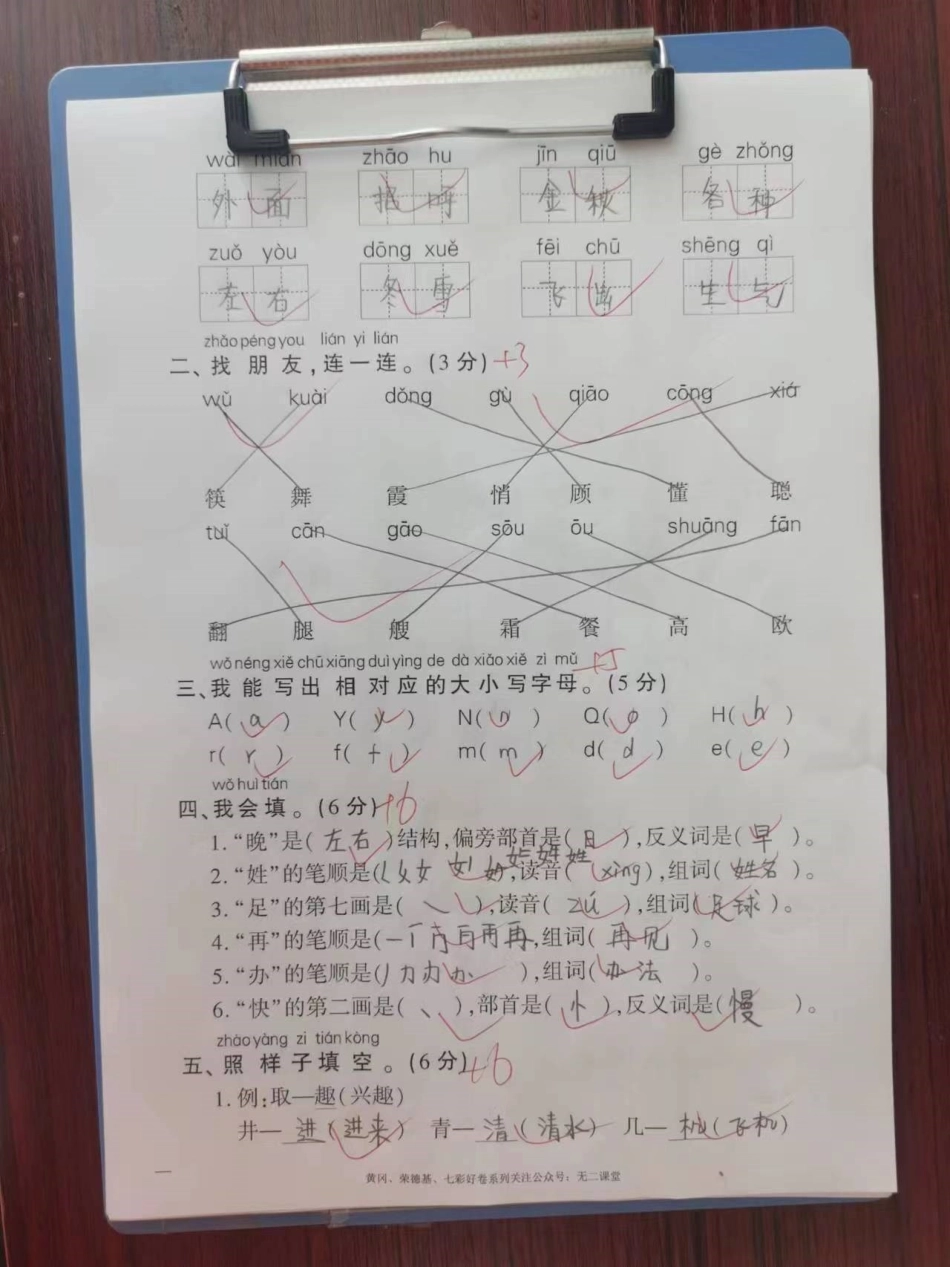 wài miàn zhāo hu jīn qiū gè zhǒng
外面 招呼 金秋 各种
zuǒ yòu dōng xuě fēi chū shēng qì
左右 冬雪 飞出 生气
zhǎo péng you lián yi lián
二、找朋友,连一连。(3分) +3
wǔ kuài dǒng gù qiāo cōng xiá
筷 舞 霞 悄 顾 懂 聪
tuǐ cān gāo sōu ōu shuāng fān
翻 腿 艘 霜 餐 高 欧
wǒ néng xiě chū xiāng duì yìng de dà xiǎo xiě zì mǔ
三、我能写出相对应的大小写字母。(5分) +5
A(a) Y(y) N(n) Q(q) H(h)
r(r) f(f) m(m) d(d) e(e)
wǒ huì tián
四、我会填。(6分) +6
1.“晚”是(左右)结构,偏旁部首是(日),反义词是(早)。
2.“姓”的笔顺是(𠃋 女 女 姓),读音(xìng),组词(姓名)。
3.“足”的第七画是(㇏),读音(zú),组词(足球)。
4.“再”的笔顺是(一 丆 再),组词(再见)。
5.“办”的笔顺是(力 办),组词(办法)。
6.“快”的第二画是(丶),部首是(忄),反义词是(慢)。
zhào yàng zi tián kòng
五、照样子填空。(6分) +6
1.例:取—趣(兴趣)
井—进(进来) 青—清(清水) 几—机(飞机)
黄冈、荣德基、七彩好卷系列关注公众号:无二课堂